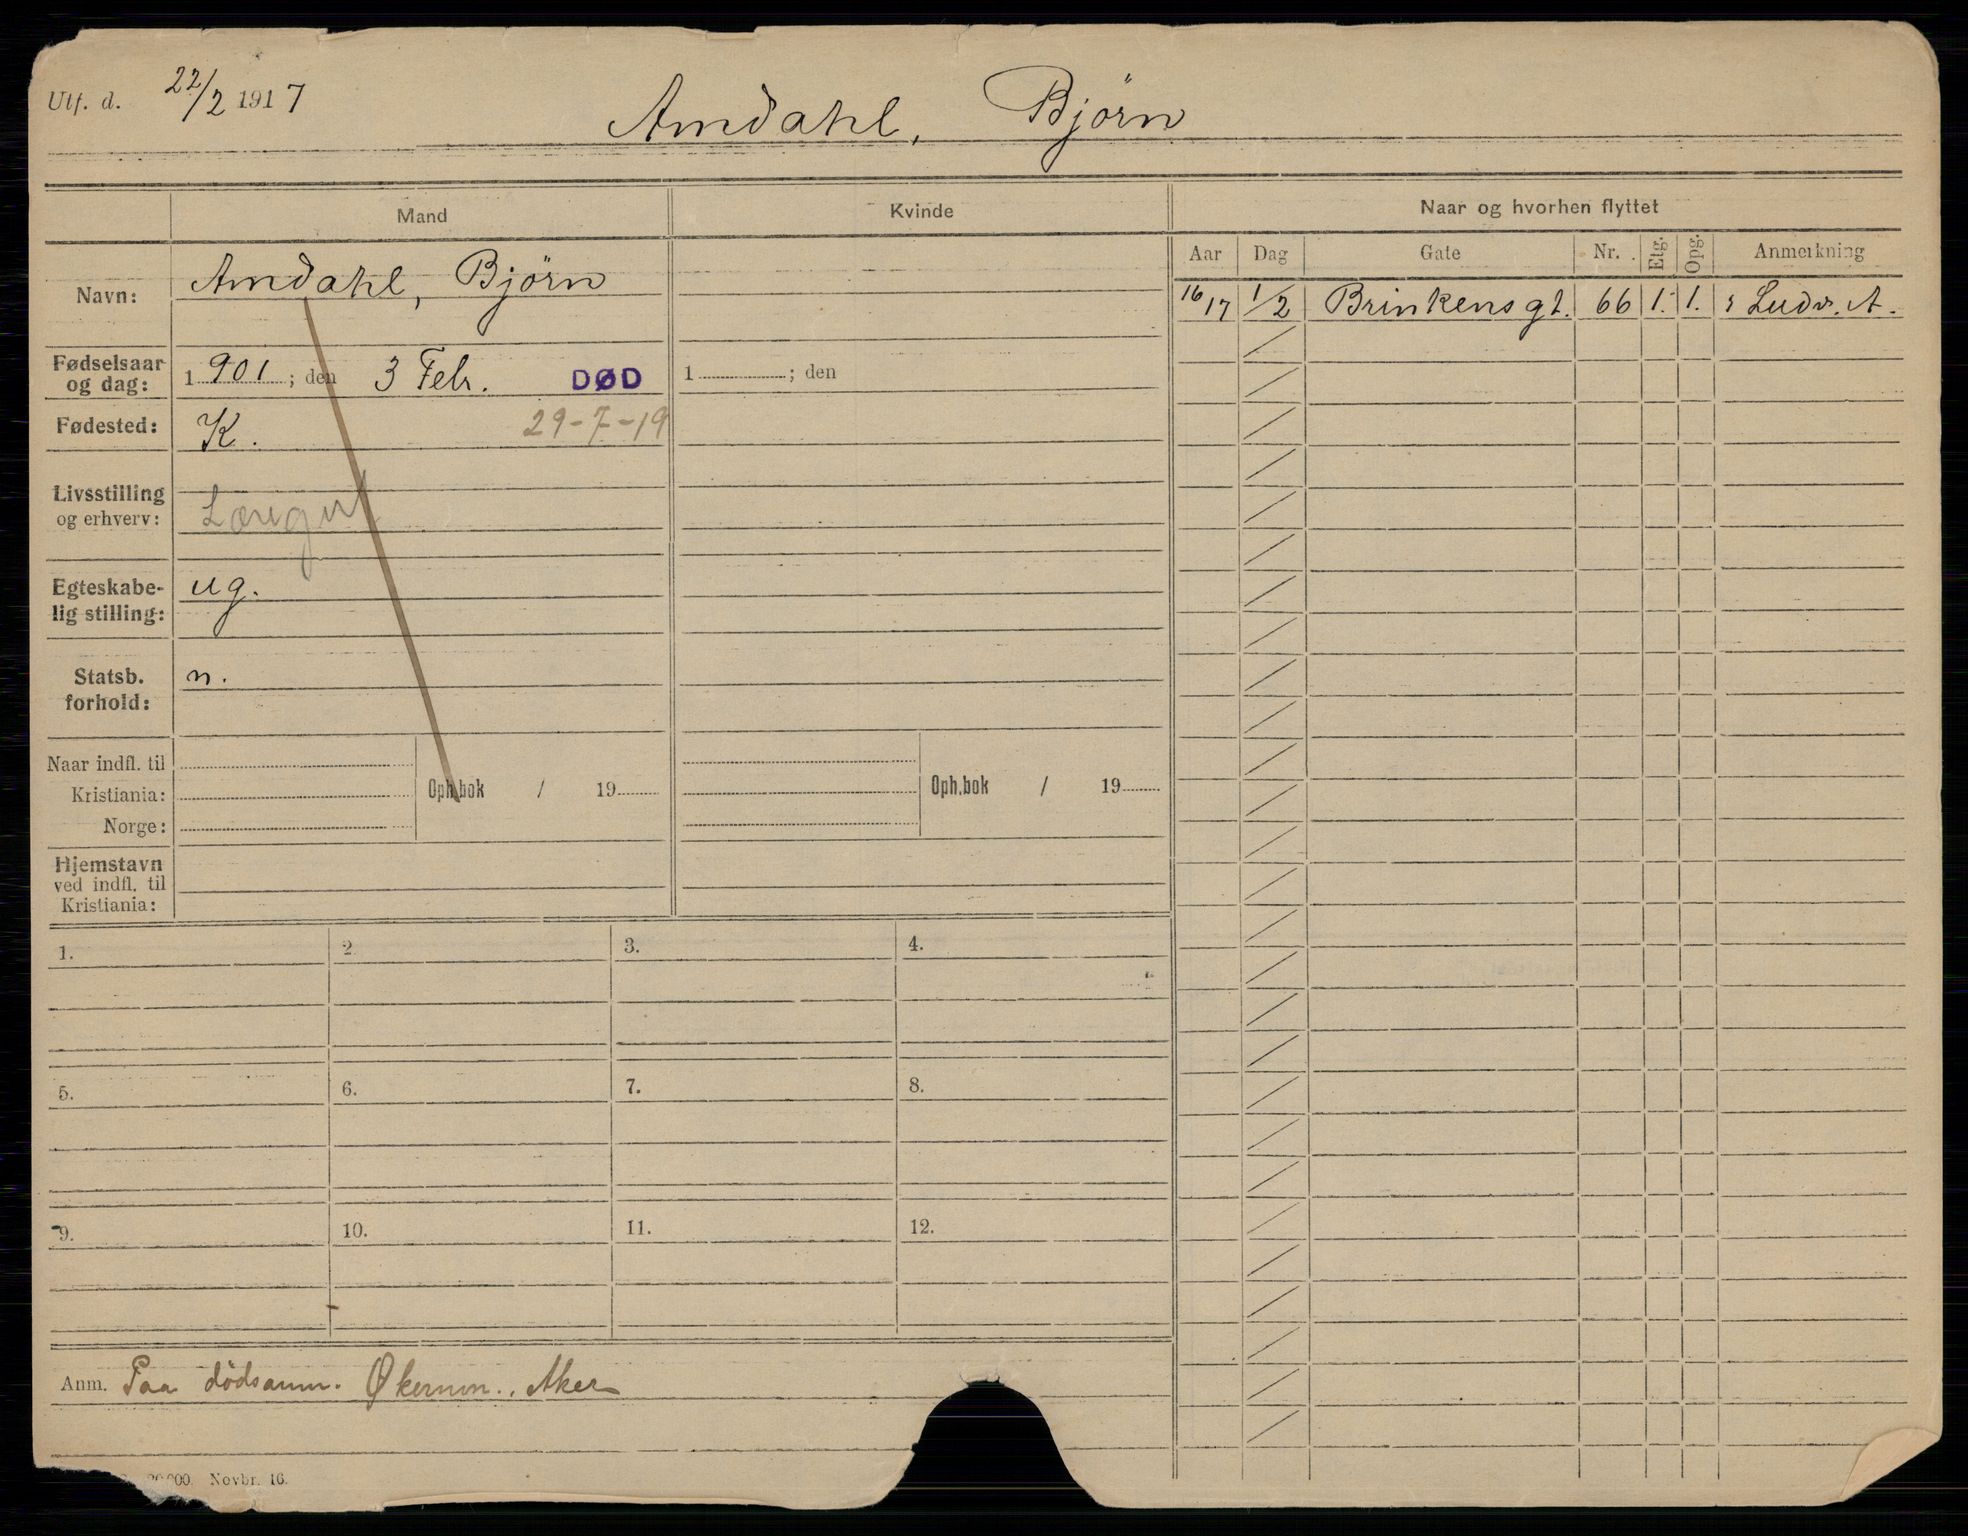 Utf. d. 22/2 1917
Amdahl, Björn
Mand
Kvinde
Naar og hvorhen flyttet
Aar Dag Gate Nr. Etg. Opg. Anmerkning
Navn: Amdahl, Björn
16/17 1/2 Brinkens gt. 66 1. 1. Ludv. A.
Fødselsaar
og dag: 1901; den 3 Febr. DØD
1 ; den
Fødested: K. 29-7-19
Livsstilling
og erhverv: Læregut
Egteskabe-
lig stilling: ug.
Statsb.
forhold: n.
Naar indfl. til
Kristiania:
Norge:
Oph.bok / 19
Oph.bok / 19
Hjemstavn
ved indfl. til
Kristiania:
1. 2. 3. 4.
5. 6. 7. 8.
9. 10. 11. 12.
Anm. Paa dödsanm. Økernvn., Aker
Novbr. 16.